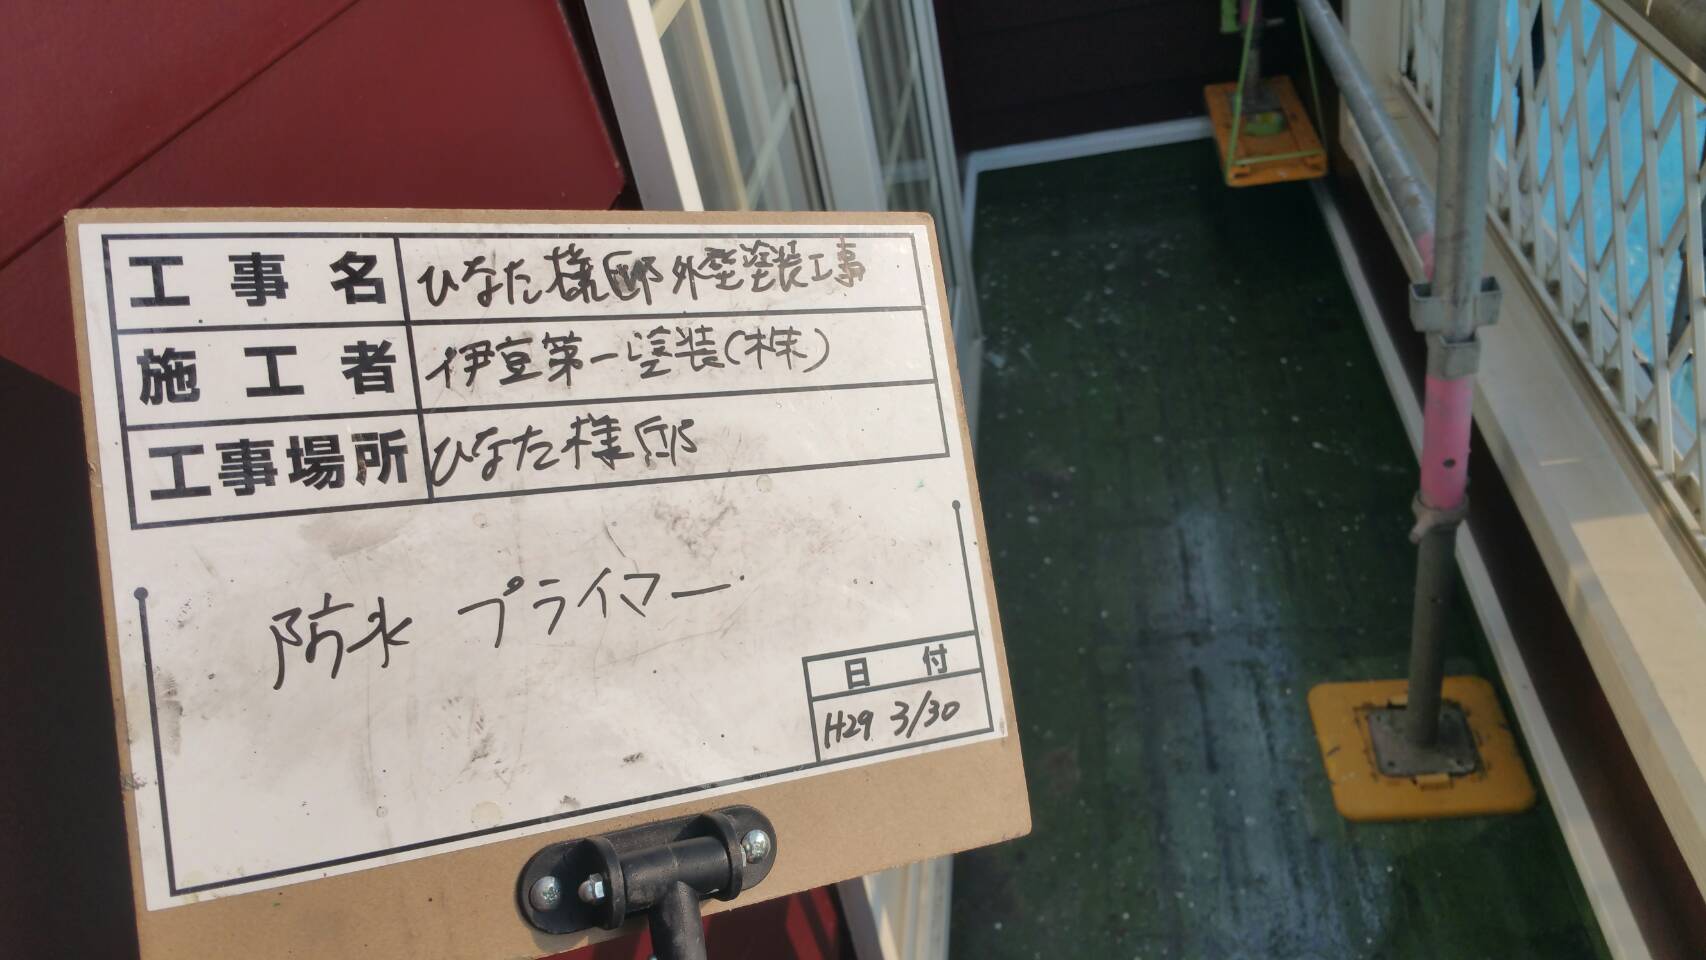 工事名 ひなた様邸外壁塗装工事
施工者 伊豆第一塗装(株)
工事場所 ひなた様邸
防水 プライマー
日付
H29 3/30